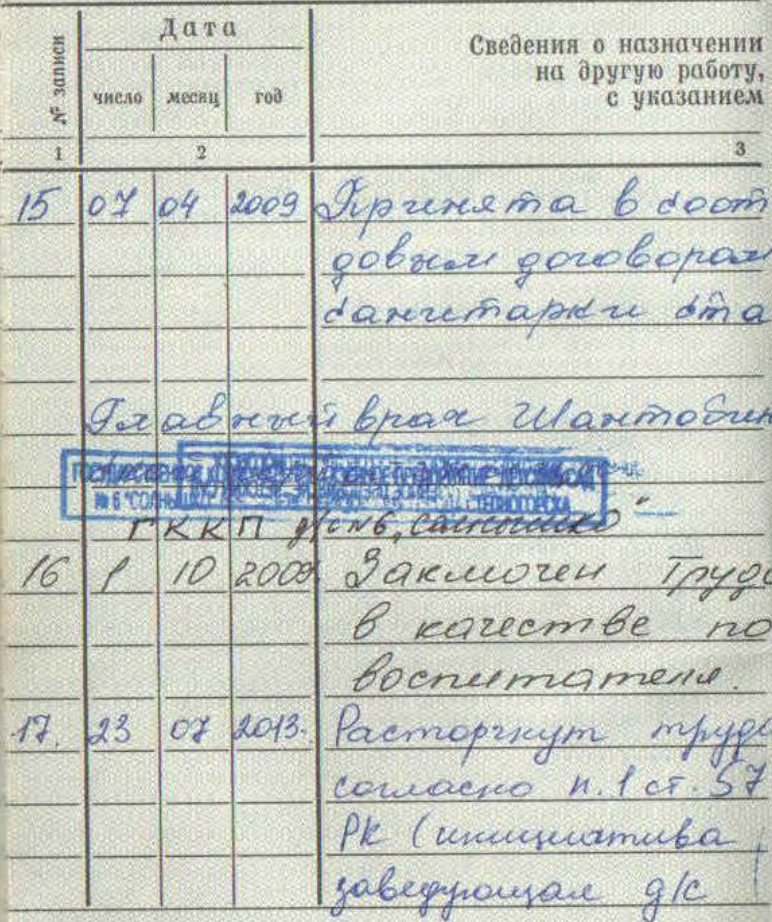 № записи
Дата
Сведения о назначении
на другую работу,
с указанием
число месяц год
1 2 3
15 07 04 2009 Принята в соот
довым договорам
санитарки ста
Главный врач Шантобин
ГККП д/с №6 "Солнышко"
16 1 10 2009 Заключен Трудо
в качестве по
воспитателя.
17. 23 07 2013. Расторгнут трудо
согласно п. 1 ст. 57
РК (инициатива
заведующая д/с